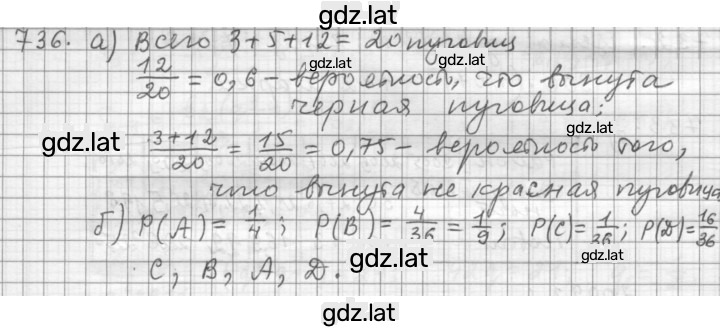 gdz.lat
736. а) Всего 3+5+12= 20 пуговиц
gdz.lat gdz.lat
12/20 = 0,6 – вероятность, что вынута
черная пуговица;
gdz.lat gdz.lat
3+12/20 = 15/20 = 0,75 – вероятность того,
gdz.lat gdz.lat
что вынута не красная пуговица
б) P(A)= 1/4; P(B)= 4/36 = 1/9; P(C)= 1/36; P(D)= 16/36
gdz.lat gdz.lat
C, B, A, D.
gdz.lat